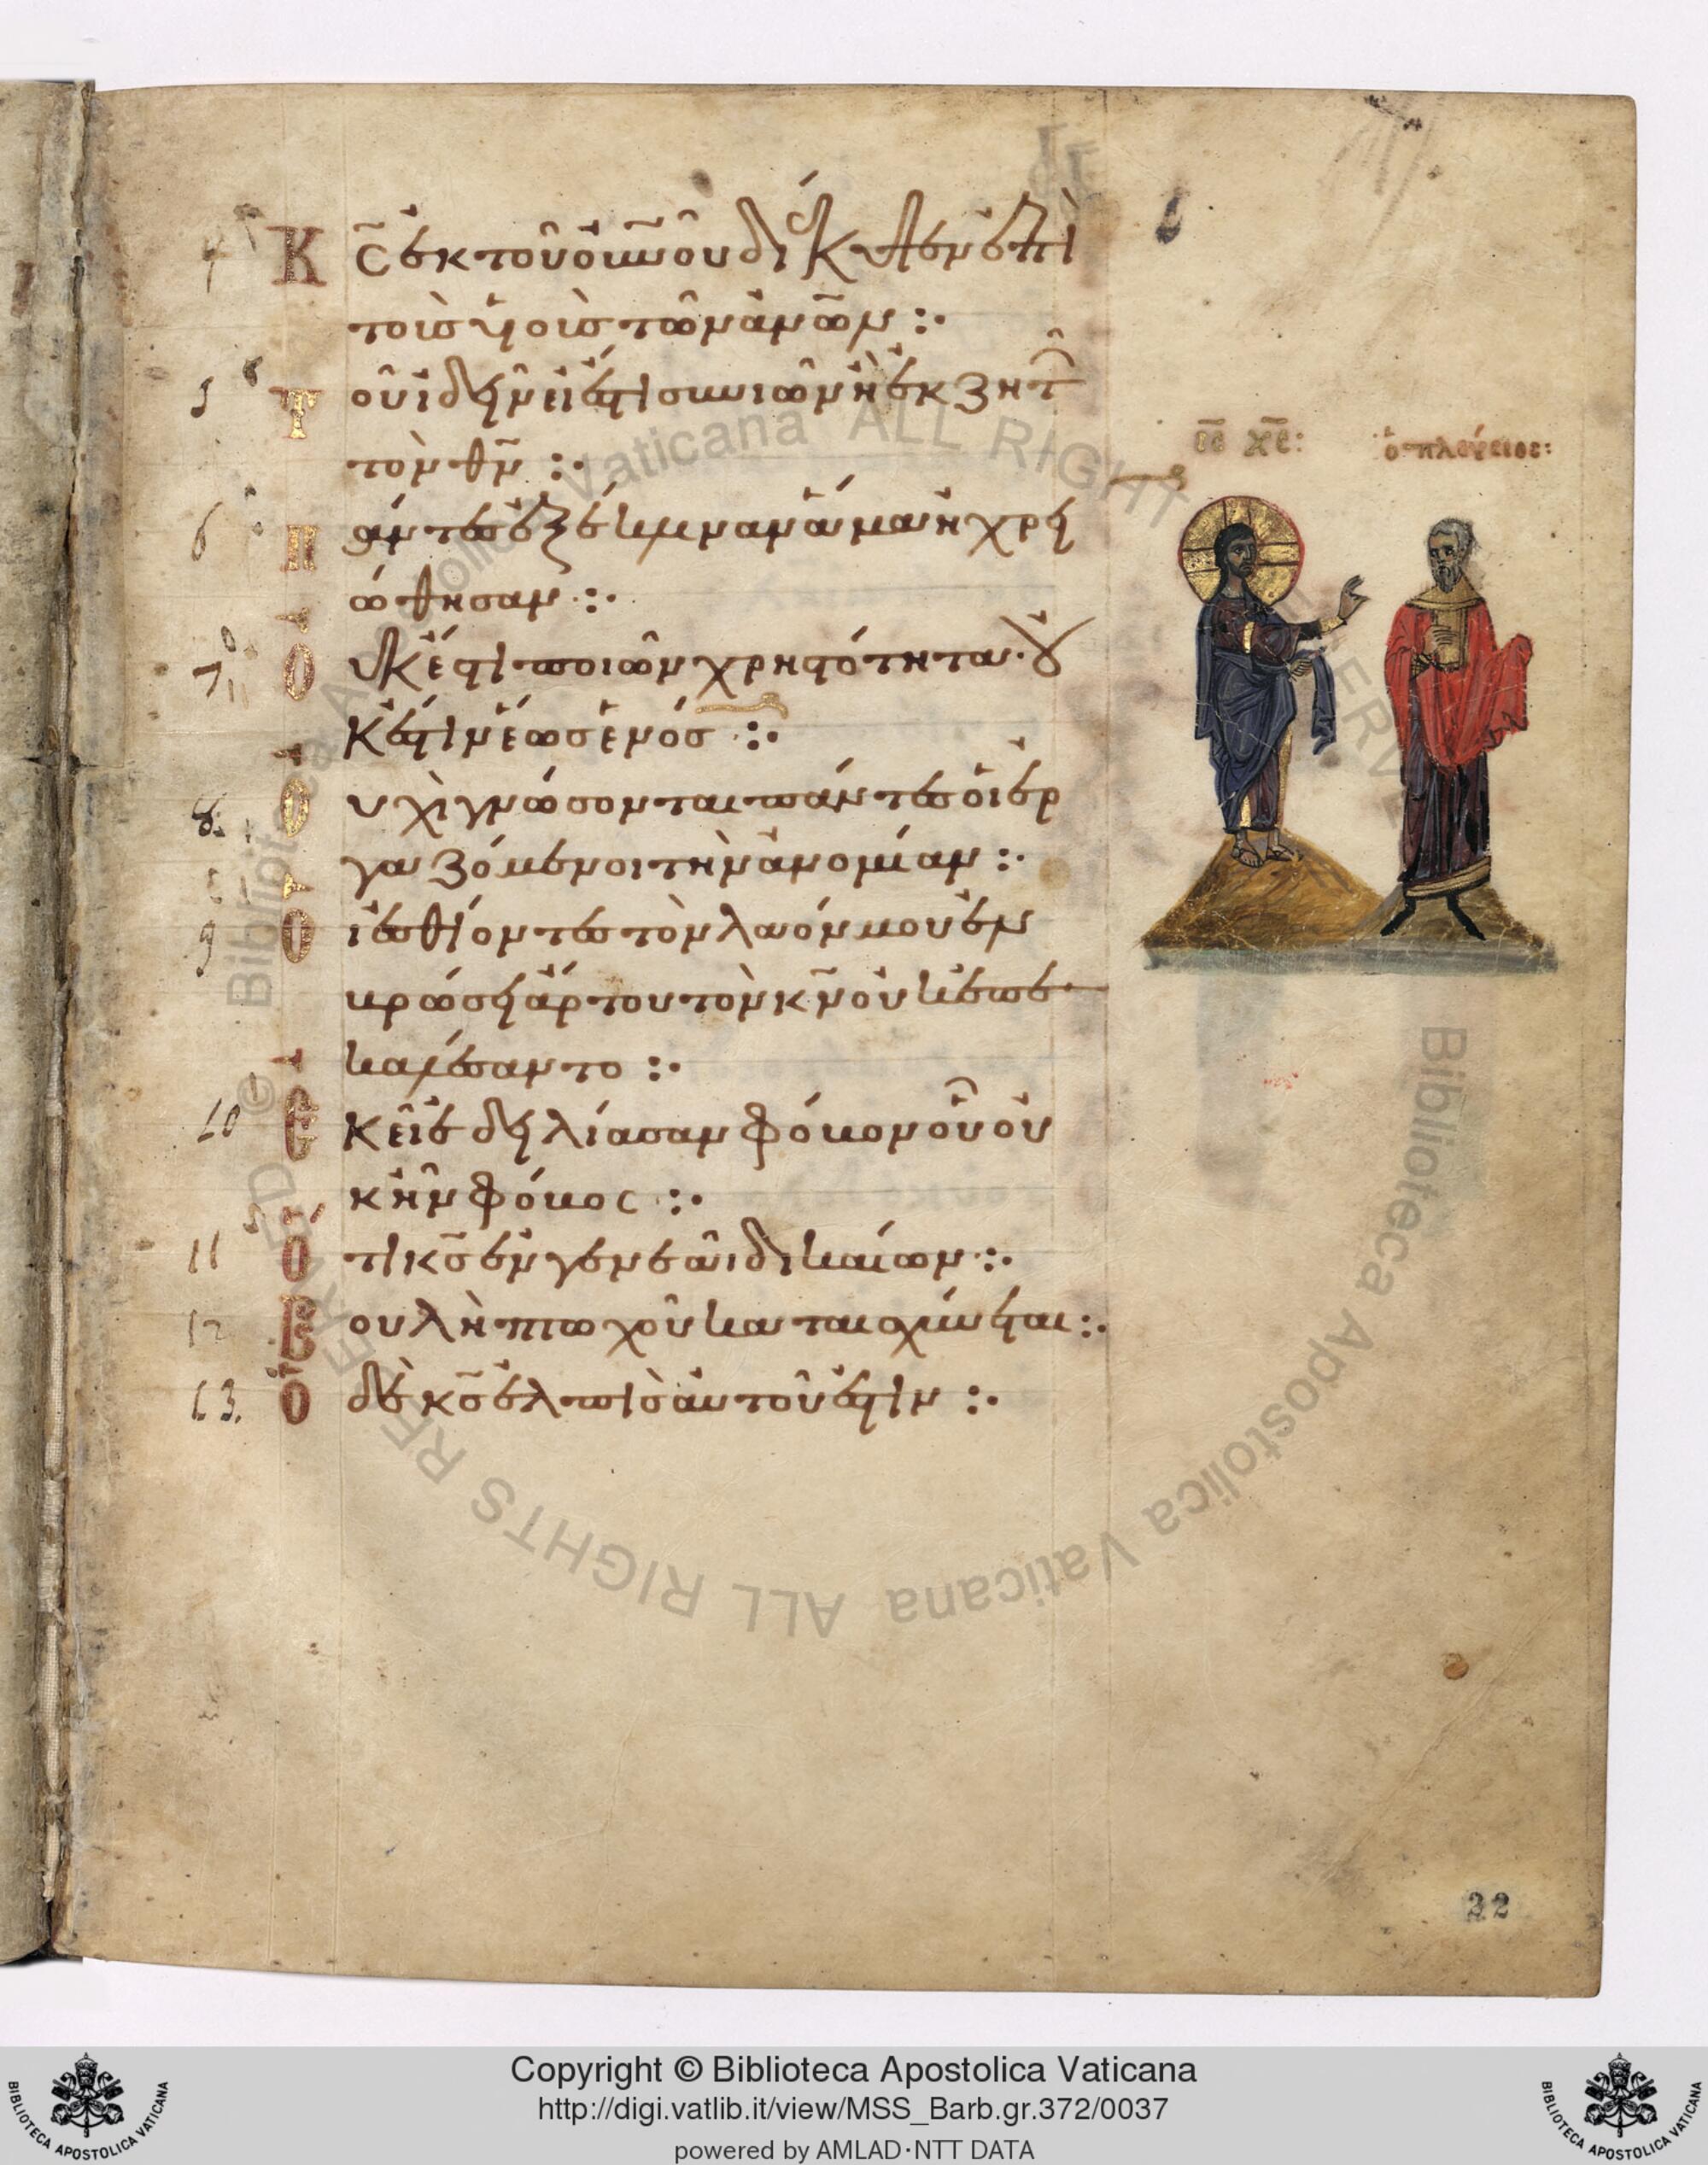 Κ̅ς̅ ἐκ τοῦ οὐ̅ν̅οῦ διέκυψεν ἐπὶ
τοὺς υἱοὺς τῶν ἀν̅ω̅ν :·
Τοῦ ἰδεῖν εἰ ἔστι συνιῶν ἢ ἐκζητῶν
τὸν θ̅ν̅ :·
Πάντες ἐξέκλιναν ἅμα ἠχρει
ώθησαν :·
Οὐκ ἔστι ποιῶν χρηστότητα· οὐ
κ ἔστιν ἕως ἑνός :·
Οὐχὶ γνώσονται πάντες οἱ ἐρ
γαζόμενοι τὴν ἀνομίαν :·
Οἱ ἐσθίοντες τὸν λαόν μου ἐν
βρώσει ἄρτου τὸν κ̅ν̅ οὐκ ἐπε
καλέσαντο :·
Ἐκεῖ ἐδειλίασαν φόβον οὗ οὐ
κ ἦν φόβος :·
Ὅτι κ̅ς̅ ἐν γενεᾶι δικαίων :·
Βουλὴν πτωχοῦ καταισχύνεται :·
Ὁ δὲ κ̅ς̅ ἐλπὶς αὐτοῦ ἐστιν :·
4
5
6
7
8.
9
10
11
12
13.
ι̅ς̅ χ̅ς̅:
ὁ πλούσιος:
22
Copyright © Biblioteca Apostolica Vaticana
http://digi.vatlib.it/view/MSS_Barb.gr.372/0037
powered by AMLAD·NTT DATA
BIBLIOTECA APOSTOLICA VATICANA
BIBLIOTECA APOSTOLICA VATICANA
Biblioteca Apostolica Vaticana ALL RIGHTS RESERVED ©
Biblioteca Apostolica Vaticana ALL RIGHTS RESERVED ©